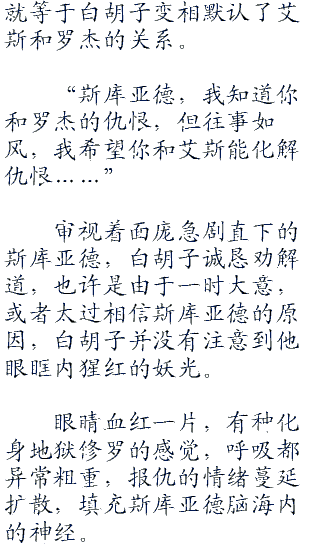 就等于白胡子变相默认了艾
斯和罗杰的关系。
“斯库亚德，我知道你
和罗杰的仇恨，但往事如
风，我希望你和艾斯能化解
仇恨……”
审视着面庞急剧直下的
斯库亚德，白胡子诚恳劝解
道，也许是由于一时大意，
或者太过相信斯库亚德的原
因，白胡子并没有注意到他
眼眶内猩红的妖光。
眼睛血红一片，有种化
身地狱修罗的感觉，呼吸都
异常粗重，报仇的情绪蔓延
扩散，填充斯库亚德脑海内
的神经。